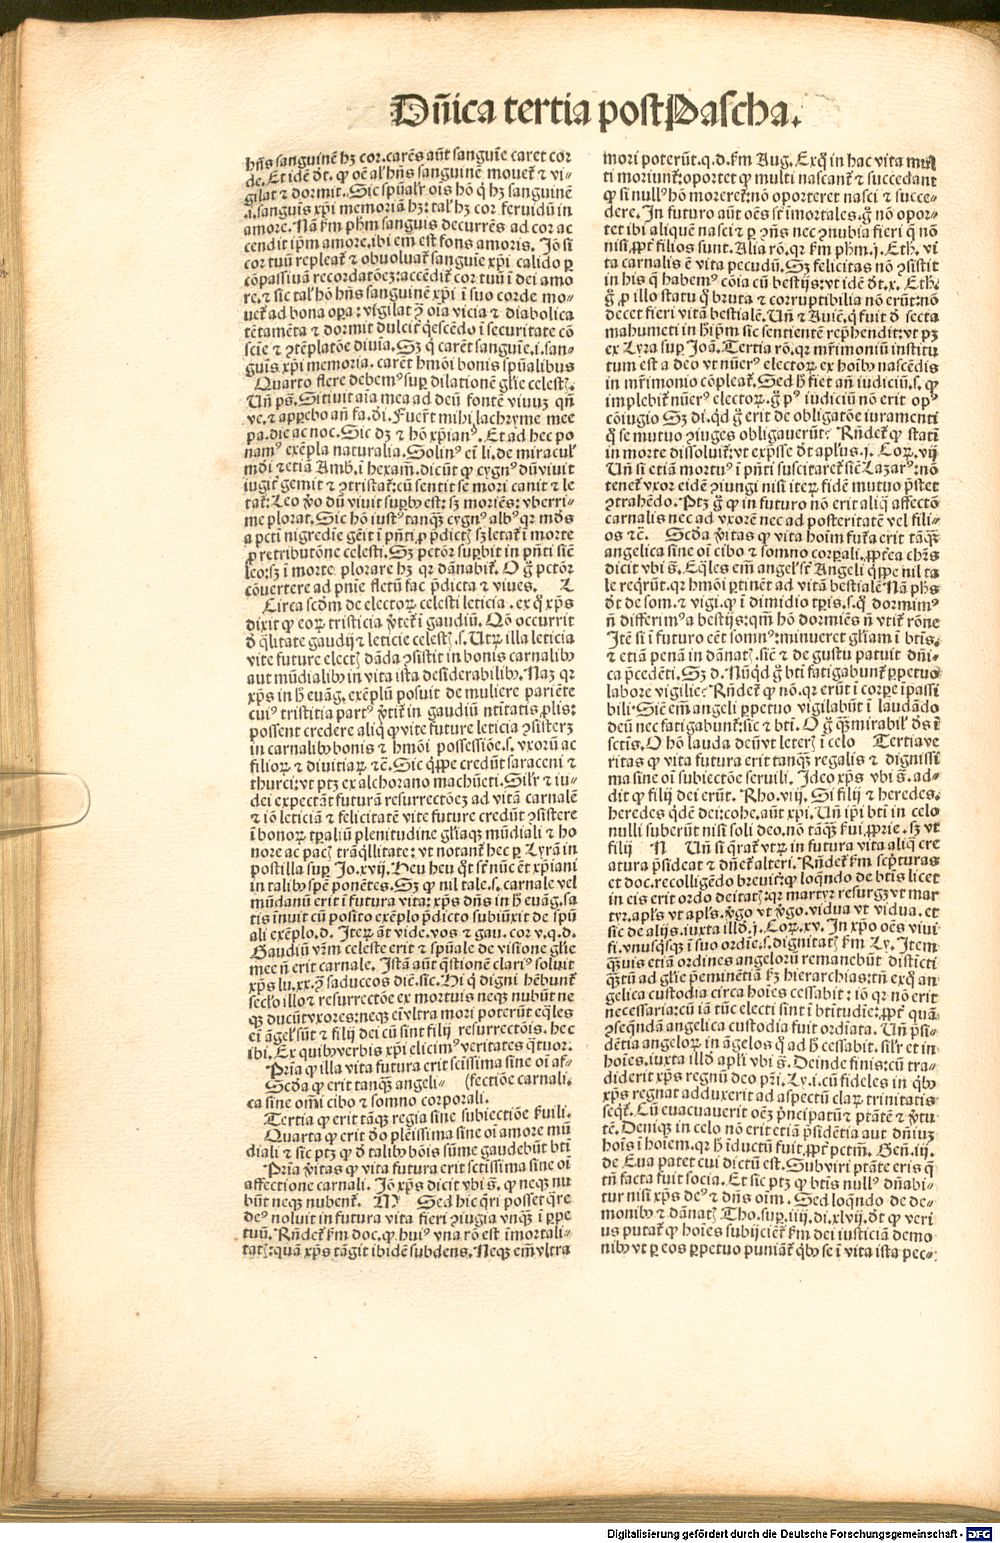 Dn̄ica tertia post Pascha.
hn̄s sanguinē hʒ cor. carēs aūt sanguīe caret cor
de. Et idē d̄t. ꝙ oē al' hn̄s sanguinē mouet̄ ⁊ vi⸗
gilat ⁊ dormit. Sic spūal'r oīs hō q̄ hʒ sanguinē
.i. sanguīs xp̄i memoriā hʒ: tal' hʒ cor feruidū in
amore. Nā km̄ phm̄ sanguis decurrēs ad cor ac
cendit ip̄m amore. ibi em̄ est fons amoris. Jō si
cor tuū repleat̄ ⁊ obuoluat̄ sanguīe xp̄i calido ꝑ
cōpassiuā recordatōeʒ: accēdit̄ cor tuū ī dei amo
re. ⁊ sic tal' hō hn̄s sanguinē xp̄i ī suo corde mo⸗
uet̄ ad bona oꝑa: vigilat ꝯ̄ oīa vicia ⁊ diabolica
tētamēta ⁊ dormit dulcit̄ q̄escēdo ī securitate cō
scīe ⁊ ꝯtēplatōe diuīa. Sʒ q̄ carēt sanguīe .i. san⸗
guīs xp̄i memoria. carēt hmōi bonis spūalibus
Quarto flere debemꝰ suꝑ dilationē gl'ie celestꝭ.
Un̄ ps̄. Sitiuit aīa mea ad deū fontē viuuʒ qn̄
ve. ⁊ apꝑebo an̄ fa. d̄i. Fuer̄t mihi lachryme mee
pa. die ac noc. Sic dʒ ⁊ hō xp̄ianꝰ. Et ad hec po
namꝰ exēpla naturalia. Solinꝰ eī li. de miracul'
mūdi ⁊ etiā Amb. ī hexam̄. dicūt ꝙ cygnꝰ dū viuit
iugit̄ gemit ⁊ ꝯtristat̄: cū sentit se mori canit ⁊ le
tat̄. Leo ꝟo dū viuit suꝑb9 est: sʒ moriēs: vberri⸗
me plorat. Sic hō iustꝰ tanqꝫ cygnꝰ albꝰ qꝛ mūdꝰ
a pcti nigredie gēit ī pn̄ti ꝓ p̄dictꝭ sʒ letat̄ ī morte
ꝓ retributōne celesti. Sʒ pctōr suꝑbit in pn̄ti sic̄
leo: sʒ ī morte plorare hʒ qꝛ dānabit̄. O g̊ pctōr
cōuertere ad pnīe fletū fac p̄dicta ⁊ viues. L
Circa scdm̄ de electoꝝ celesti leticia. ex q̊ xp̄s
dixit ꝙ eoꝝ tristicia ꝟtet̄ ī gaudiū. Qō occurrit
d̄ q̄litate gaudij ⁊ leticie celestꝭ .s. Utꝝ illa leticia
vite future electꝭ dāda ꝯsistit in bonis carnalibꝰ
aut mūdialibꝰ in vita ista desiderabilibꝰ. Naʒ qꝛ
xp̄s in h̄ euāg. exēplū posuit de muliere pariēte
cuiꝰ tristitia partꝰ ꝟtit̄ in gaudiū nt̄itatis ꝓlis:
possent credere aliq̄ ꝙ vite future leticia ꝯsisterʒ
in carnalibꝰ bonis ⁊ hmōi possessiōe .s. vxorū ac
filioꝝ ⁊ diuitiaꝝ ⁊c̄. Sic q̄ppe credūt saraceni ⁊
thurci: vt ptʒ ex alchorano machūeti. Sil'r ⁊ iu⸗
dei expectāt futurā resurrectōeʒ ad vitā carnalē
⁊ iō leticiā ⁊ felicitatē vite future credūt ꝯsistere
ī bonoꝝ tꝑaliū plenitudine gl'iaqꝫ mūdiali ⁊ ho
nore ac pacꝭ trāq̄llitate: vt notant̄ hec ꝑ Lyrā in
postilla suꝑ Jo. xvij. Heu heu q̊t sr̄t nūc ēt xp̄iani
in talibꝰ spē ponētes. Sʒ ꝙ nil tale .s. carnale vel
mūdanū erit ī futura vita: xp̄s dn̄s in h̄ euāg. sa
tis īnuit cū posito exēplo p̄dicto subiūxit de spū
ali exēplo. d. Iteꝝ āt vide. vos ⁊ gau. cor v. q. d.
Gaudiū vr̄m celeste erit ⁊ spūale de visione gl'ie
mee n̄ erit carnale. Istā aūt q̄stionē clariꝰ soluit
xp̄s lu. xx. ꝯ̄ saduceos diē. sic. Hi q̄ digni hēbunt̄
sec̄lo illo ⁊ resurrectōe ex mortuis neqꝫ nubūt ne
qꝫ ducūt vxores: neqꝫ eī vltra mori poterūt eq̄les
eī āgel'sūt ⁊ filij dei cū sint filij resurrectōis. hec
ibi. Ex quibꝰ verbis xp̄i elicimꝰ veritates q̄tuor.
Prīa ꝙ illa vita futura erit scīssima sine oī af⸗
Scd̄a ꝙ erit tanqꝫ angeli⸗ (fectiōe carnali.
ca sine om̄i cibo ⁊ somno corporali.
Tertia ꝙ erit tāqꝫ regia sine subiectiōe ẜuili.
Quarta ꝙ erit d̄o plēissima sine oī amore mū
diali ⁊ sic ptʒ ꝙ d̄ talibꝰ bōis sūme gaudebūt bt̄i
Prīa ꝟitas ꝙ vita futura erit sctīssima sine oī
affectione carnali. Jō xp̄s dicit vbi s̄. ꝙ neqꝫ nu
būt neqꝫ nubent̄. M Sed hic q̄ri posset q̄re
deꝰ noluit in futura vita fieri ꝯiugia vnqꝫ̄ ī ꝑpe
tuū. Rn̄det̄ km̄ doc. ꝙ huiꝰ vna rō est īmortali⸗
tatꝭ: quā xp̄s tāgit ibidē subdens. Neqꝫ em̄ vltra
mori poterūt. q. d. km̄ Aug. Ex q̄ in hac vita mul
ti moriunt̄: oportet ꝙ multi nascant̄ ⁊ succedant
ꝙ si nullꝰ hō moreret̄: nō oporteret nasci ⁊ succe⸗
dere. In futuro aūt oēs sr̄t īmortales. g̊ nō opor⸗
tet ibi aliquē nasci ⁊ ꝑ ꝯn̄s nec ꝯnubia fieri q̄ nō
nisi ꝓpt̄ filios sunt. Alia rō. qꝛ km̄ phm̄ .j. Eth. vi
ta carnalis ē vita pecudū. Sʒ felicitas nō ꝯsistit
in his q̄ habemꝰ cōia cū bestijs: vt idē d̄t. x. Eth.
g̊ ꝓ illo statu q̄ bruta ⁊ corruptibilia nō erūt: nō
decet fieri vitā bestialē. Un̄ ⁊ Auic̄. q̄ fuit d̄ secta
mahumeti in h̊ ip̄m sic sentientē rep̄hendit: vt pʒ
ex Lyra suꝑ Joā. Tertia rō. qꝛ mr̄imoniū institu
tum est a deo vt nūerꝰ electoꝝ ex hoībꝰ nascēdis
in mr̄imonio cōpleat̄. Sed h̄ fiet an̄ iudiciū .s. ꝙ
implebit̄ nūerꝰ electoꝝ. g̊ pꝰ iudiciū nō erit opꝰ
cōiugio Sʒ di. qd̄ g̊ erit de obligatōe iuramenti
q̊ se mutuo ꝯiuges obligauerūt: Rn̄det̄ ꝙ statī
in morte dissoluit̄: vt exp̄sse d̄t apl'us .j. Coꝝ. vij
Un̄ si etiā mortuꝰ ī pn̄ti suscitaret̄ sic̄ Lazarꝰ: nō
tenet̄ vxor eidē ꝯiungi nisi iteꝝ fidē mutuo p̄stet
ꝯtrahēdo. Ptʒ g̊ ꝙ in futuro nō erit aliq̄ affectō
carnalis nec ad vxorē nec ad posteritatē vel fili⸗
os ⁊c̄. Scd̄a ꝟitas ꝙ vita hoīm fut̄a erit tāqꝫ
angelica sine oī cibo ⁊ somno corꝑali. ꝓpt̄ea chr̄s
dicit vbi s̄. Eq̄les em̄ angel' sr̄t Angeli q̄ppe nil ta
le req̄rūt. qꝛ hmōi ꝑtinēt ad vitā bestialē Nā phs̄
d̄t de som. ⁊ vigi. ꝙ ī dimidio tꝑis .s. q̊ dormimꝰ
n̄ differimꝰ a bestijs: qm̄ hō dormiēs n̄ vtit̄ rōne
Itē si ī futuro eēt somnꝰ: minueret gl'iam ī bt̄is.
⁊ etiā penā in dānatꝭ. sic̄ ⁊ de gustu patuit dn̄i⸗
ca p̄cedēti. Sʒ d. Nūq̄d g̊ bt̄i fatigabunt̄ ꝑpetuo
labore vigilie: Rn̄det̄ ꝙ nō. qꝛ erūt ī corꝑe īpassi
bili: Sic̄ em̄ angeli ꝑpetuo vigilabūt ī laudādo
deū nec fatigabunt̄: sic ⁊ bt̄i. O g̊ qꝫ̄ mirabil' d̄s ī
sctīs. O hō lauda deū vt leterꝭ ī celo Tertia ve
ritas ꝙ vita futura erit tanqꝫ regalis ⁊ dignissi
ma sine oī subiectōe seruili. Ideo xp̄s vbi s̄. ad⸗
dit ꝙ filij dei erūt. Rho. viij. Si filij ⁊ heredes.
heredes q̄dē dei: cohe. aūt xp̄i. Un̄ ip̄i bt̄i in celo
nulli suberūt nisi soli deo. nō tāqꝫ ẜui ꝓprie. sʒ vt
filij N Un̄ si q̄rat̄ vtꝝ in futura vita aliq̄ cre
atura p̄sideat ⁊ dn̄et̄ alteri. Rn̄det̄ km̄ scp̄turas
et doc. recolligēdo breuit̄: ꝙ loq̄ndo de bt̄is licet
in eis erit ordo deitatꝭ: qꝛ martyr resurgʒ vt mar
tyr. apl's vt apl's. ꝟgo vt ꝟgo. vidua vt vidua. et
sic de alijs. iuxta illd̄ .j. Coꝝ. xv. In xp̄o oēs viui
fi. vnusq̄sqꝫ ī suo ordīe .s. dignitatꝭ km̄ Ly. Item
qꝫuis etiā ordines angeloꝝ remanebūt distīcti
qꝫ̄tū ad gl'ie p̄eminētiā kʒ hierarchias: tn̄ ex q̊ an
gelica custodia circa hoīes cessabit: iō qꝛ nō erit
necessaria: cū iā tūc electi sint ī bt̄itudīe: ꝓpt̄ quā
ꝯseq̄ndā angelica custodia fuit ordīata. Un̄ p̄si⸗
dētia angeloꝝ in āgelos q̄ ad h̊ cessabit. sil'r et in
hoīes. iuxta illd̄ apl'i vbi s̄. Deinde finis: cū tra⸗
diderit xp̄s regnū deo pr̄i. Ly. i. cū fideles in q̄bꝰ
xp̄s regnat adduxerit ad aspectū claꝝ trinitatis
seqt̄. Cū euacuauerit oēʒ p̄ncipatū ⁊ ptātē ⁊ ꝟtu
tē. Deniqꝫ in celo nō erit etiā p̄sidētia aut dn̄iuʒ
hoīs ī hoīem. qꝛ h̄ īductū fuit. ꝓpt̄ pctm̄. Gen̄. iij.
de Eua patet cui dictū est. Sub viri ptāte eris q̄
tn̄ facta fuit socia. Et sic ptʒ ꝙ bt̄is nullꝰ dn̄abi⸗
tur nisi xp̄s deꝰ ⁊ dn̄s oīm. Sed loq̄ndo de de⸗
monibꝰ ⁊ dānatꝭ Tho. suꝑ. iiij. di. xlvij. d̄t ꝙ veri
us putat̄ ꝙ hoīes subijciēt̄ km̄ dei iusticiā demo
nibꝰ vt ꝑ eos ꝑpetuo puniāt̄ q̄bꝰ se ī vita ista pec⸗
Digitalisierung gefördert durch die Deutsche Forschungsgemeinschaft - DFG